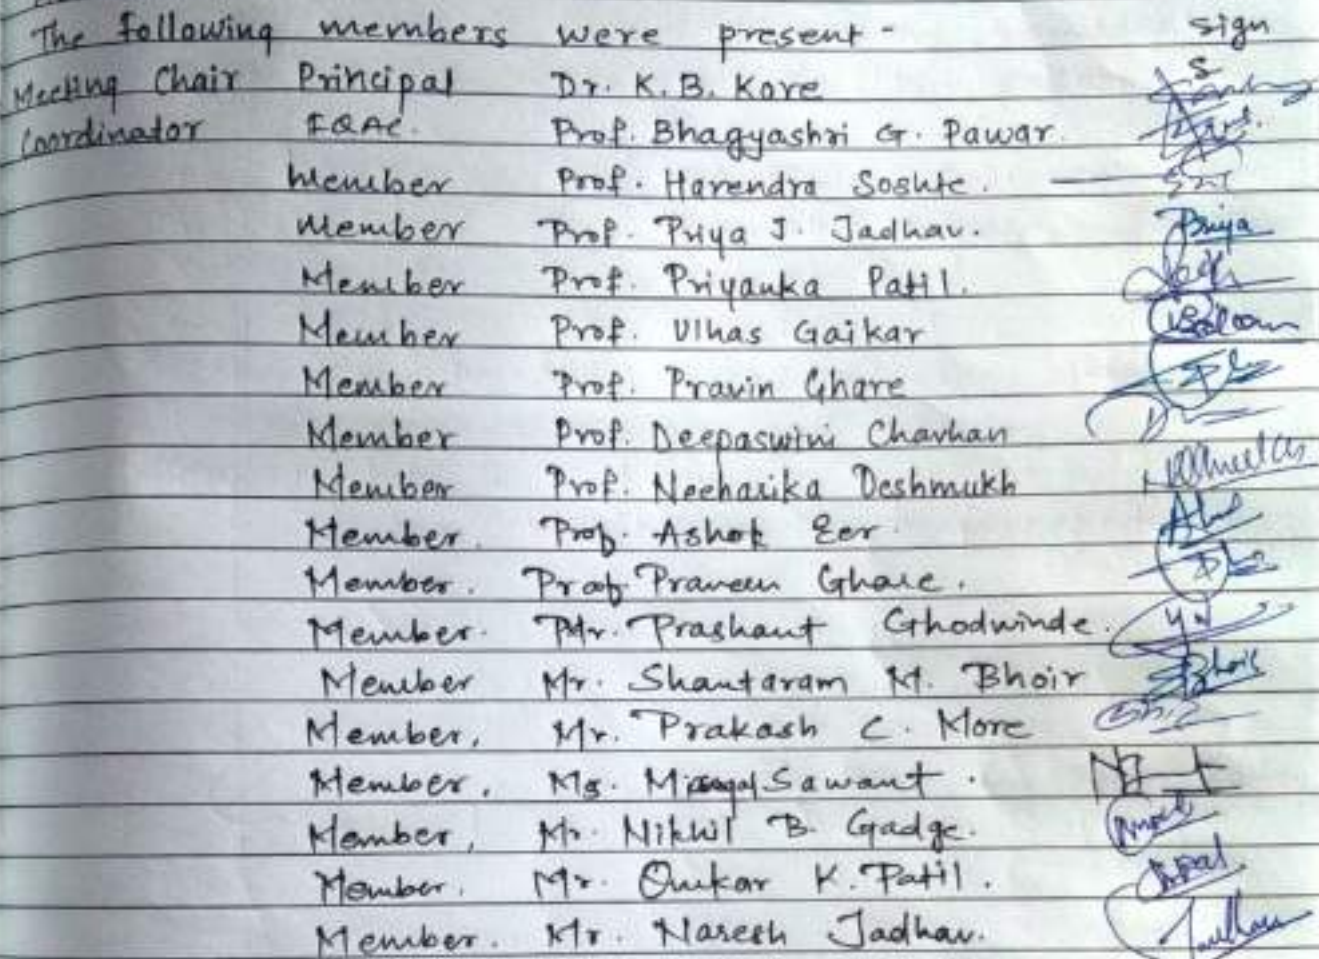 The following members were present - sign
Meeting Chair Principal Dr. K.B. Kore
Coordinator IQAC. Prof. Bhagyashri G. Pawar.
Member Prof. Harendra Soshte.
Member Prof. Priya J. Jadhav. Priya
Member Prof. Priyanka Patil.
Member Prof. Ulhas Gaikar
Member Prof. Pravin Ghare
Member Prof. Deepaswini Chavhan
Member Prof. Neeharika Deshmukh
Member. Prof. Ashok Eer.
Member. Prof. Praveen Ghare.
Member. Mr. Prashant Ghodwinde.
Member Mr. Shantaram M. Bhoir Bhoir
Member, Mr. Prakash C. More
Member, Ms. Sawant.
Member, Mr. Nikhil B. Gadge.
Member. Mr. Omkar K. Patil.
Member. Mr. Naresh Jadhav.